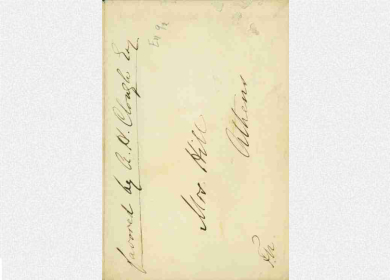 favored by A. H. Clough Esq
Mrs Hill
Athens